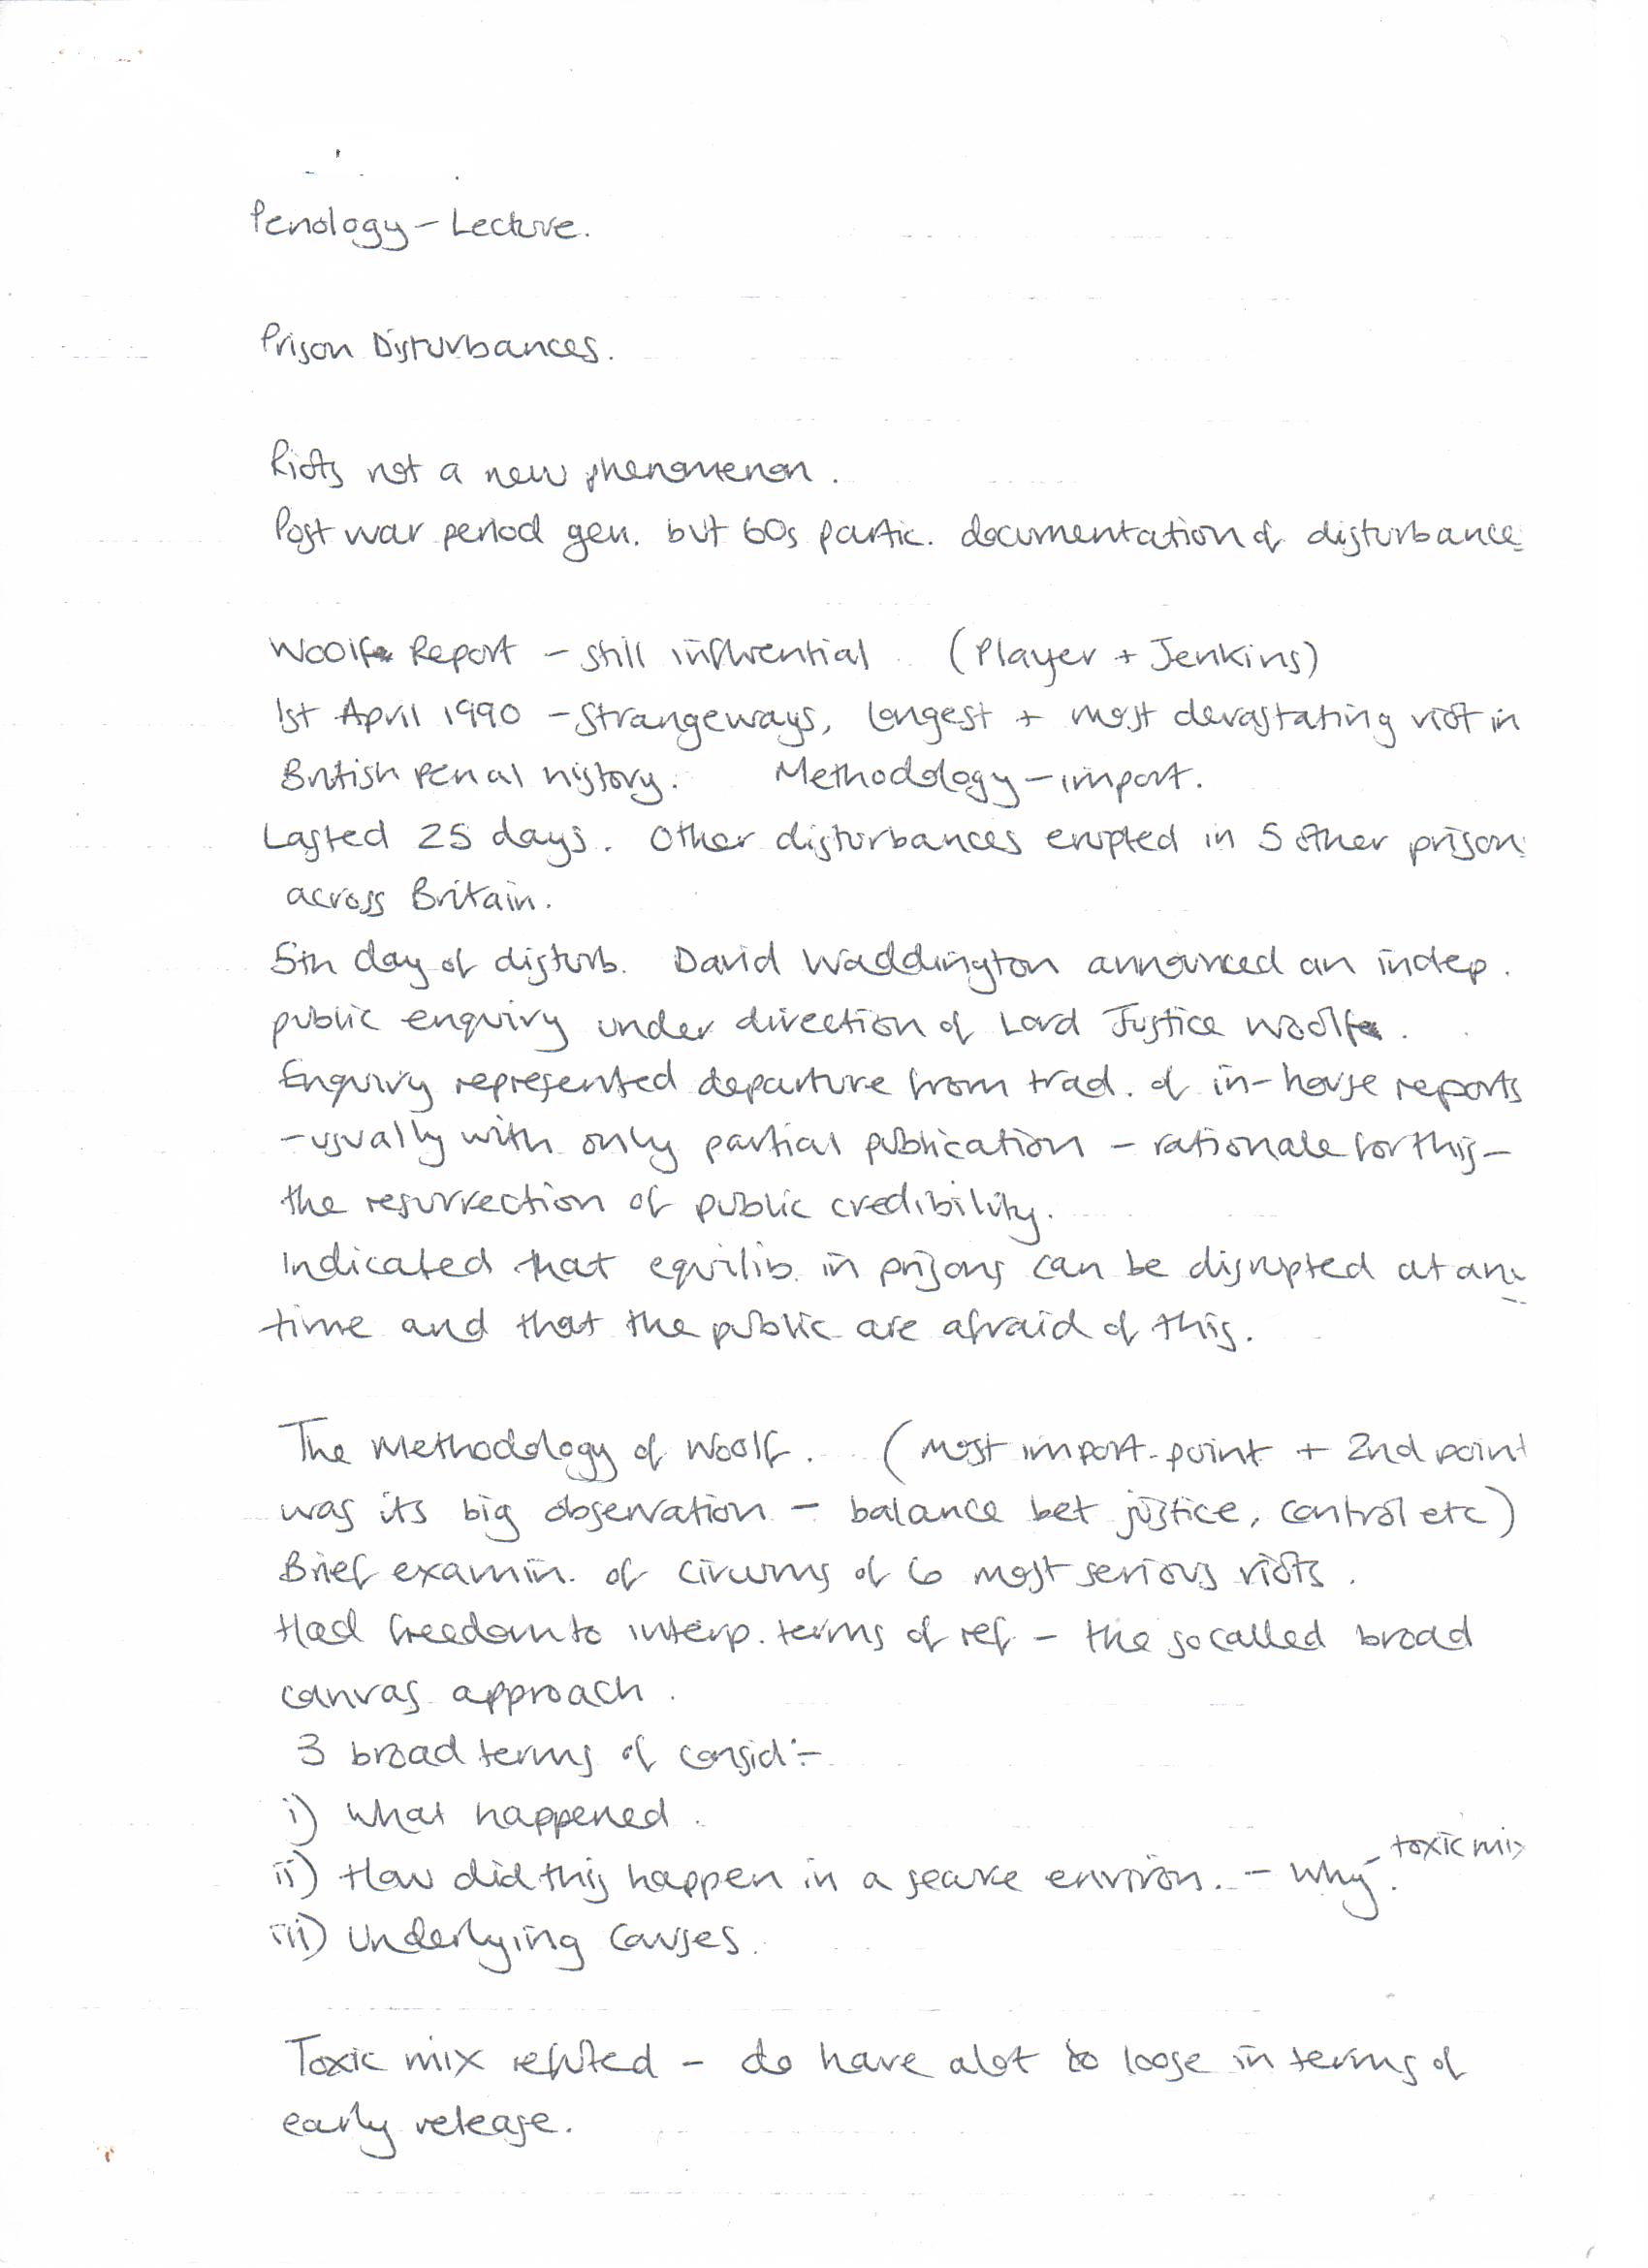 Penology - Lecture.
Prison Disturbances.
Riots not a new phenomenon.
Post war period gen. but 60s partic. documentation of disturbance
Woolf Report - still influential (Player + Jenkins)
1st April 1990 - Strangeways, longest + most devastating riot in
British penal history. Methodology - import.
Lasted 25 days. Other disturbances erupted in 5 other prison
across Britain.
5th day of disturb. David Waddington announced an indep.
public enquiry under direction of Lord Justice Woolf.
Enquiry represented departure from trad. of in-house reports
- usually with only partial publication - rationale for this -
the resurrection of public credibility.
Indicated that equilib. in prisons can be disrupted at any
time and that the public are afraid of this.
The Methodology of Woolf. (Most import. point + 2nd point
was its big observation - balance bet justice, control etc)
Brief examin. of circums of 6 most serious riots.
Had freedom to interp. terms of ref - the so called broad
canvas approach.
3 broad terms of consid:-
i) What happened.
toxic mix
ii) How did this happen in a secure environ. - Why.
iii) Underlying Causes.
Toxic mix refuted - do have alot to loose in terms of
early release.